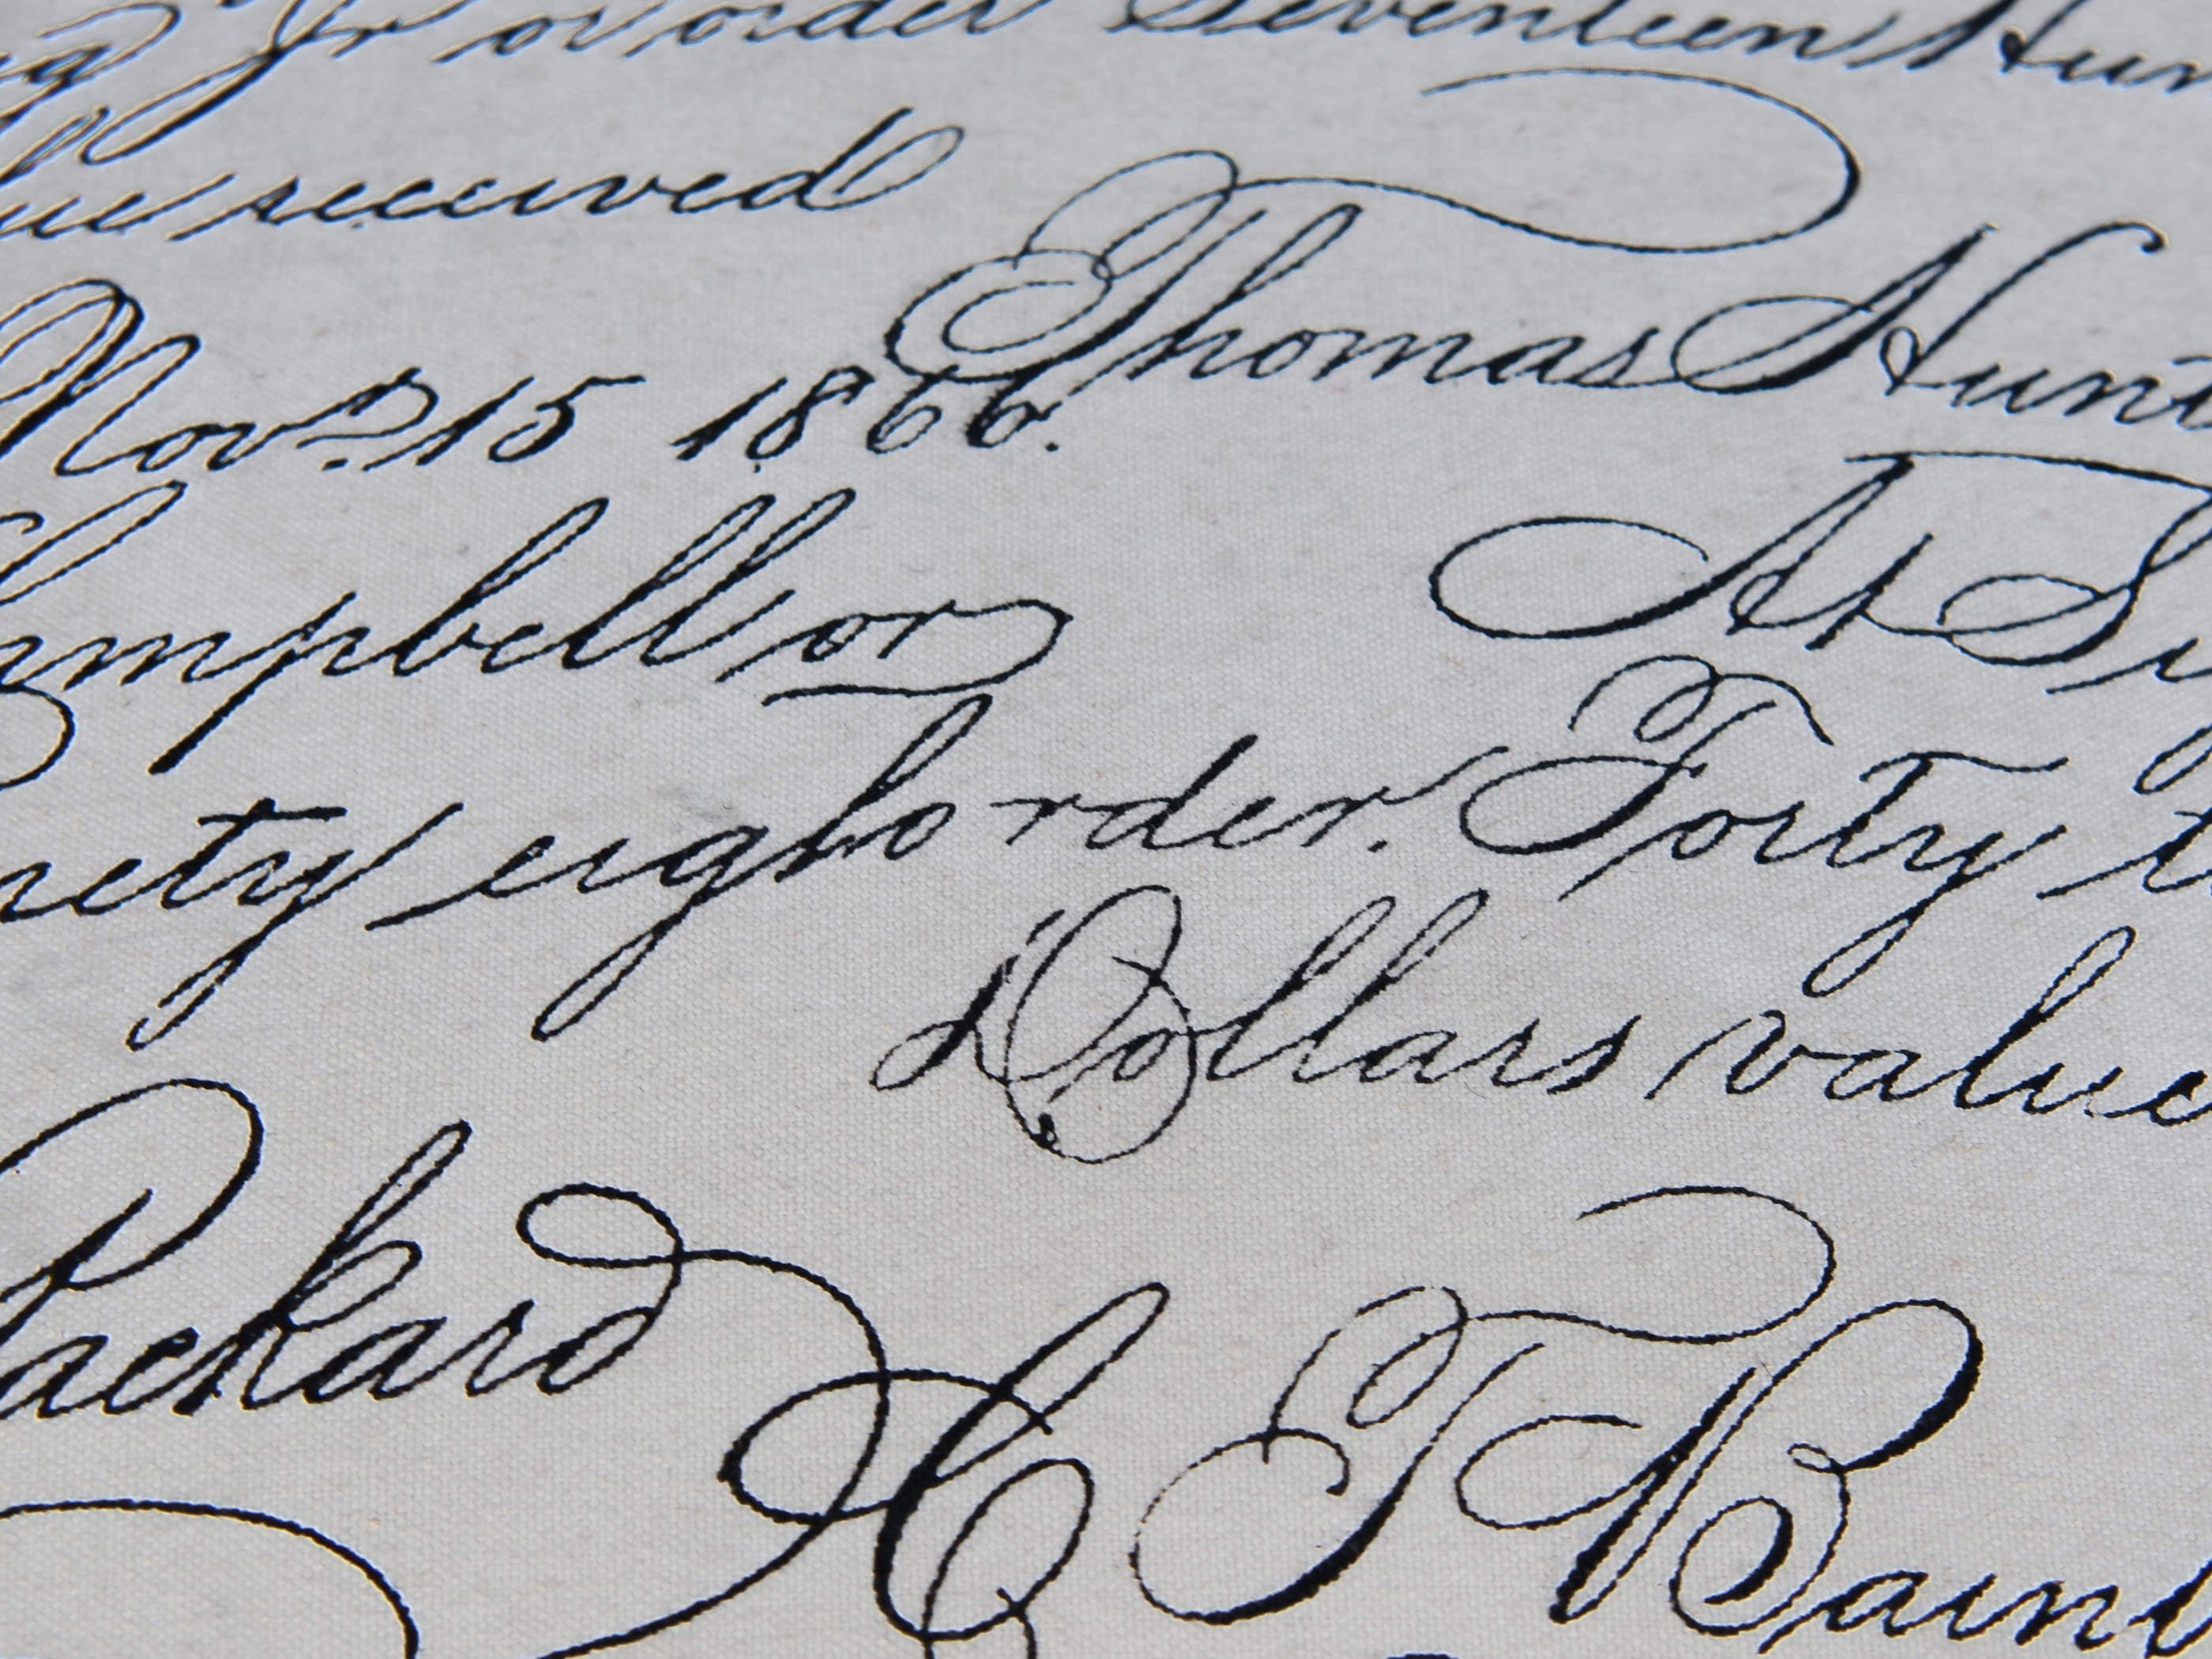 Jr or order Seventeen Hun
lue received
Thomas Hunt
Nov. 15 1866.
Campbell or
At Si
nety eigh order. Forty t
Dollars value
Packard
T Bain